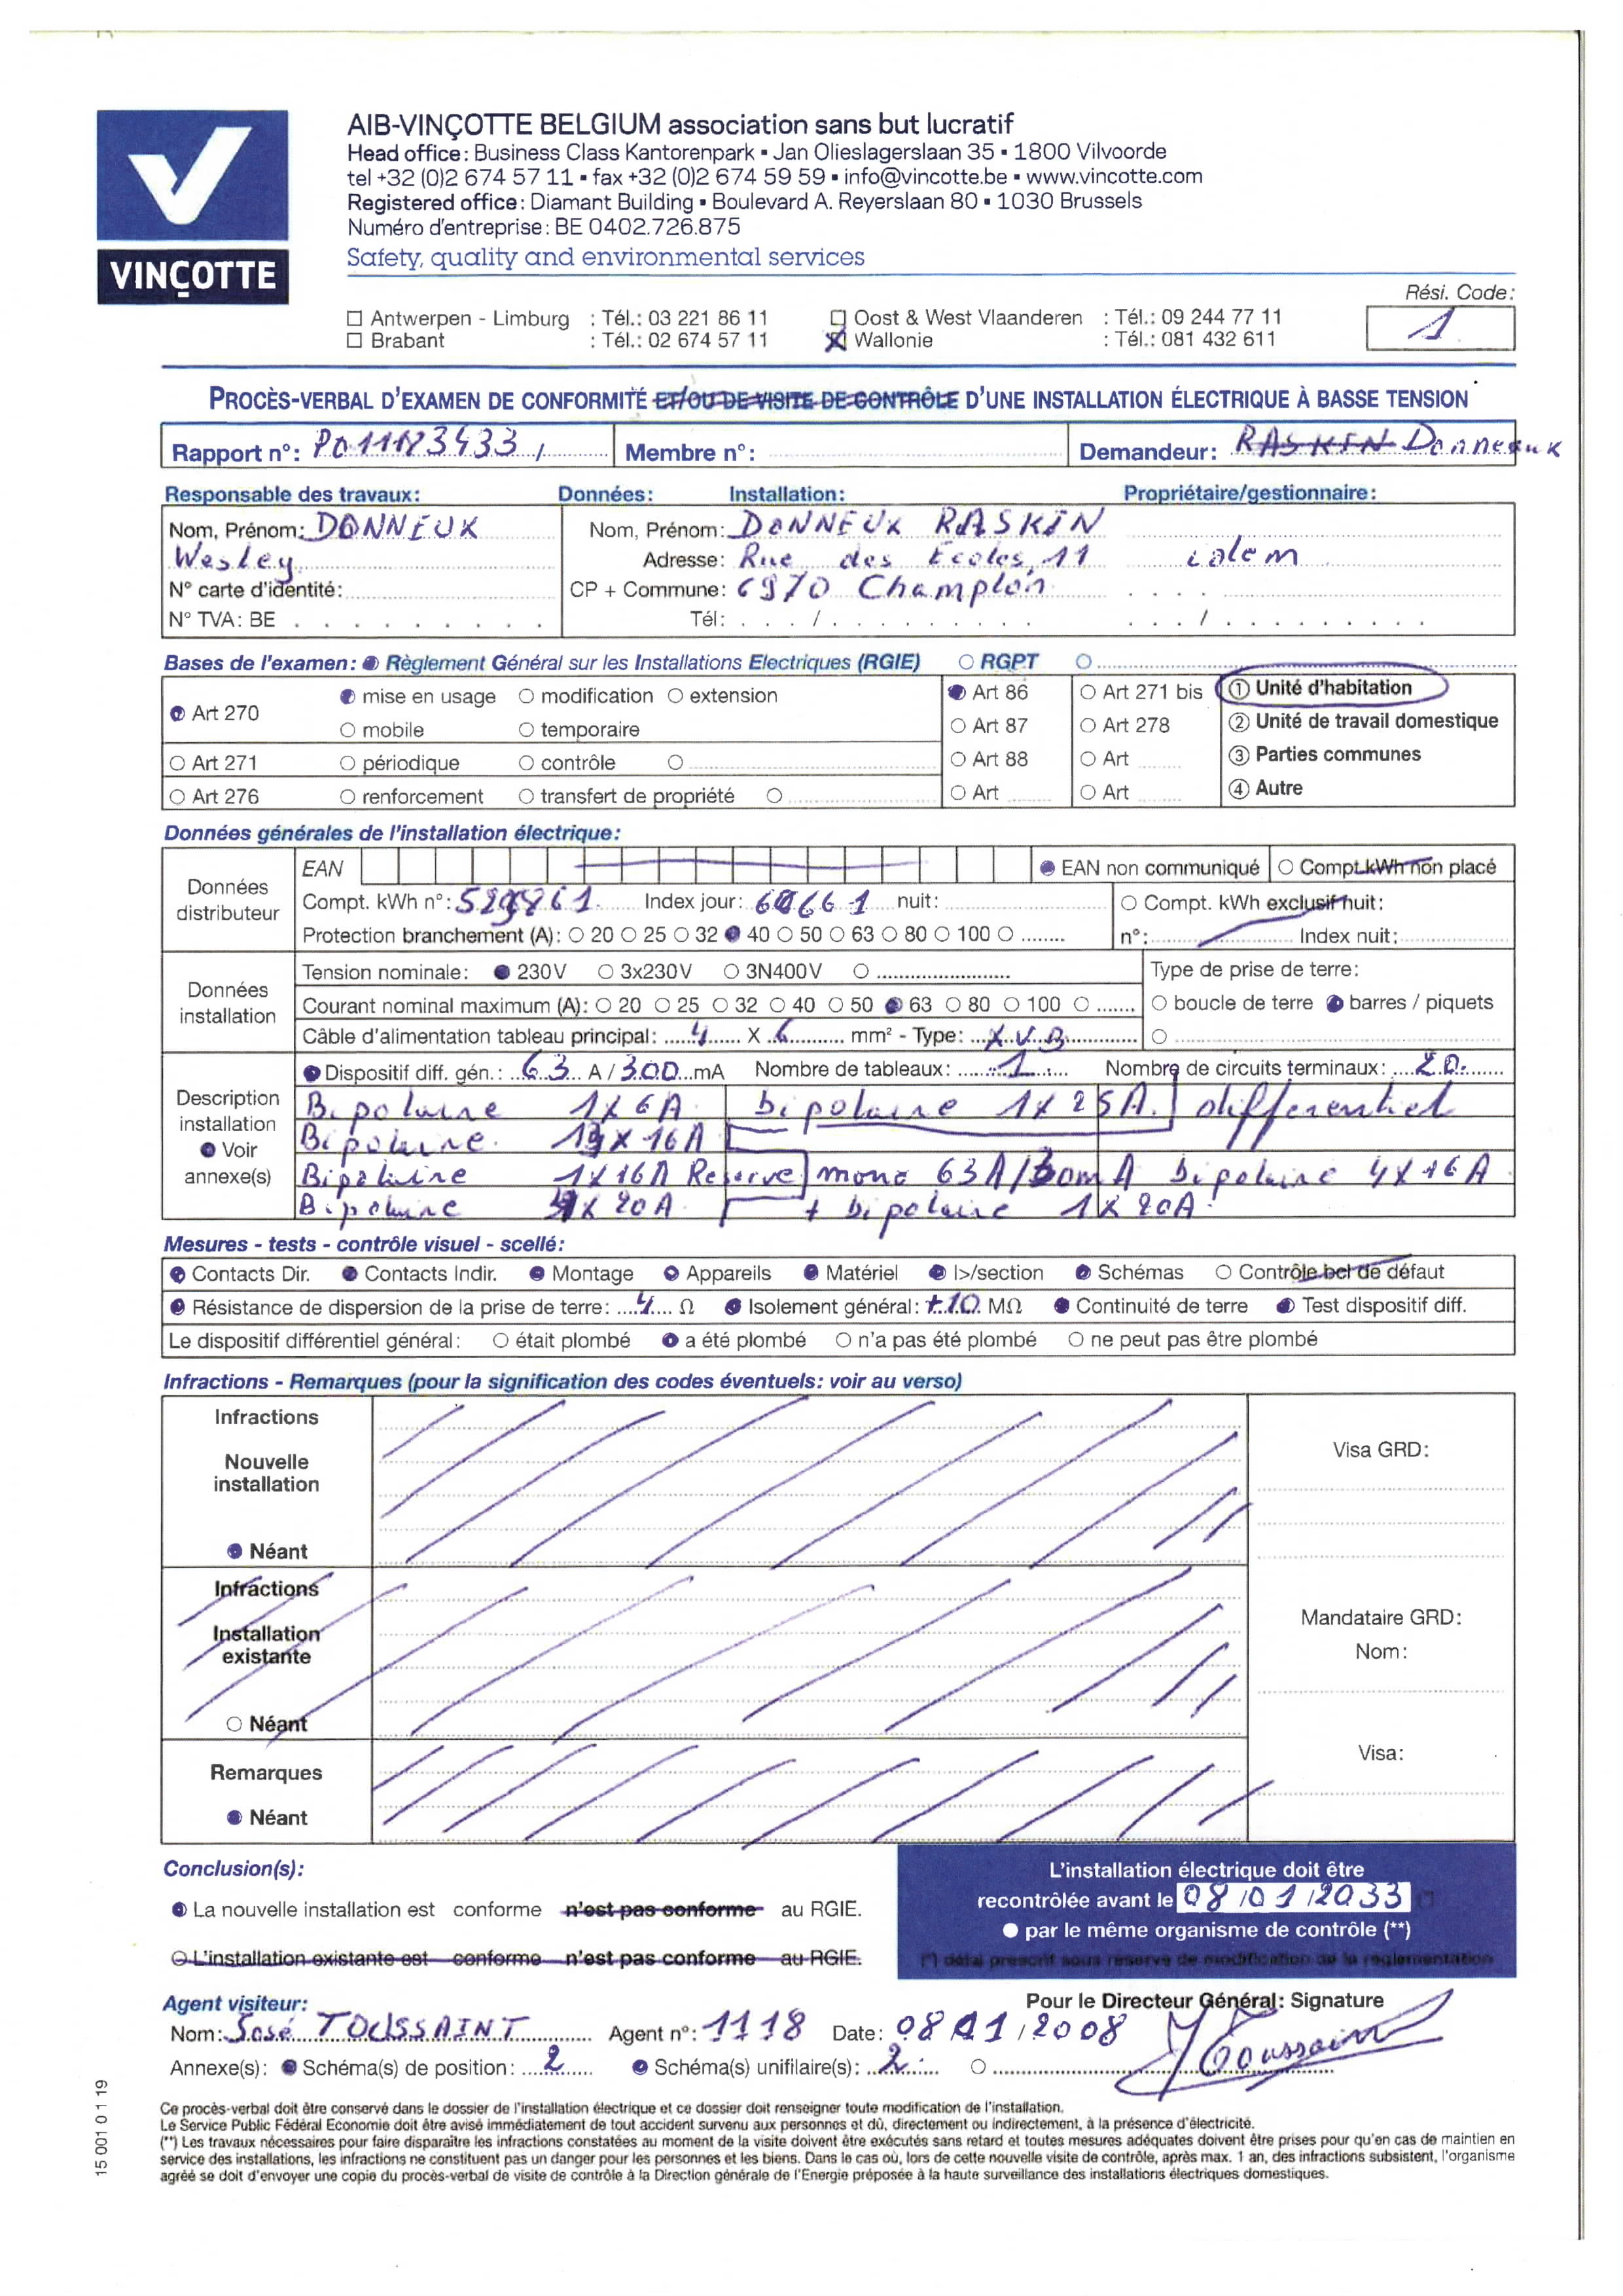 AIB-VINÇOTTE BELGIUM association sans but lucratif
Head office: Business Class Kantorenpark ▪ Jan Olieslagerslaan 35 ▪ 1800 Vilvoorde
tel +32 (0)2 674 57 11 ▪ fax +32 (0)2 674 59 59 ▪ info@vincotte.be ▪ www.vincotte.com
Registered office: Diamant Building ▪ Boulevard A. Reyerslaan 80 ▪ 1030 Brussels
Numéro d'entreprise: BE 0402.726.875
Safety, quality and environmental services
VINÇOTTE
Rési. Code:
1
Antwerpen - Limburg : Tél.: 03 221 86 11 Oost & West Vlaanderen : Tél.: 09 244 77 11
Brabant : Tél.: 02 674 57 11 Wallonie : Tél.: 081 432 611
PROCÈS-VERBAL D'EXAMEN DE CONFORMITÉ ET/OU DE VISITE DE CONTRÔLE D'UNE INSTALLATION ÉLECTRIQUE À BASSE TENSION
Rapport n°: Membre n°: Demandeur: RASKIN Donneux
Responsable des travaux: Données: Installation: Propriétaire/gestionnaire:
Nom, Prénom: DONNEUX Nom, Prénom: DONNEUX RASKIN
Wesley Adresse: Rue des Ecoles, 11 idem
N° carte d'identité: CP + Commune: 6970 Champlon
N° TVA: BE Tél:
Bases de l'examen: Règlement Général sur les Installations Electriques (RGIE) RGPT
Art 270 mise en usage modification extension Art 86 Art 271 bis ① Unité d'habitation
mobile temporaire Art 87 Art 278 ② Unité de travail domestique
Art 271 périodique contrôle Art 88 Art ③ Parties communes
Art 276 renforcement transfert de propriété Art Art ④ Autre
Données générales de l'installation électrique:
Données distributeur
EAN EAN non communiqué Compt.kWh non placé
Compt. kWh n°: Index jour: nuit: Compt. kWh exclusif nuit:
Protection branchement (A): 20 25 32 40 50 63 80 100 n°: Index nuit:
Données installation
Tension nominale: 230V 3x230V 3N400V Type de prise de terre:
Courant nominal maximum (A): 20 25 32 40 50 63 80 100 boucle de terre barres / piquets
Câble d'alimentation tableau principal: 4 X 6 mm² - Type: X.V.B
Description installation Voir annexe(s)
Dispositif diff. gén.: 63 A / 300 mA Nombre de tableaux: 1 Nombre de circuits terminaux: 20
Bipolaire 1x6A bipolaire 1x25A. differentiel
Bipolaire x16A
Bipolaire 1x16A Reserve mono 63A/30mA bipolaire 4x16A
Bipolaire x20A + bipolaire 1x20A
Mesures - tests - contrôle visuel - scellé:
Contacts Dir. Contacts Indir. Montage Appareils Matériel I>/section Schémas Contrôle bcl de défaut
Résistance de dispersion de la prise de terre: 4 Ω Isolement général: +10 MΩ Continuité de terre Test dispositif diff.
Le dispositif différentiel général: était plombé a été plombé n'a pas été plombé ne peut pas être plombé
Infractions - Remarques (pour la signification des codes éventuels: voir au verso)
Infractions
Nouvelle
installation
Néant
Visa GRD:
Infractions
Installation
existante
Néant
Mandataire GRD:
Nom:
Remarques
Néant
Visa:
Conclusion(s):
La nouvelle installation est conforme n'est pas conforme au RGIE.
L'installation existante est conforme n'est pas conforme au RGIE.
L'installation électrique doit être
recontrôlée avant le 08/01/2033 (*)
par le même organisme de contrôle (**)
(*) délai prescrit sous réserve de modification de la réglementation
Agent visiteur: Pour le Directeur Général: Signature
Nom: José TOUSSAINT Agent n°: 1118 Date: 08/01/2008
Toussaint
Annexe(s): Schéma(s) de position: 2 Schéma(s) unifilaire(s): 2
Ce procès-verbal doit être conservé dans le dossier de l'installation électrique et ce dossier doit renseigner toute modification de l'installation.
Le Service Public Fédéral Economie doit être avisé immédiatement de tout accident survenu aux personnes et dû, directement ou indirectement, à la présence d'électricité.
(**) Les travaux nécessaires pour faire disparaître les infractions constatées au moment de la visite doivent être exécutés sans retard et toutes mesures adéquates doivent être prises pour qu'en cas de maintien en
service des installations, les infractions ne constituent pas un danger pour les personnes et les biens. Dans le cas où, lors de cette nouvelle visite de contrôle, après max. 1 an, des infractions subsistent, l'organisme
agréé se doit d'envoyer une copie du procès-verbal de visite de contrôle à la Direction générale de l'Energie préposée à la haute surveillance des installations électriques domestiques.
15 001 01 19